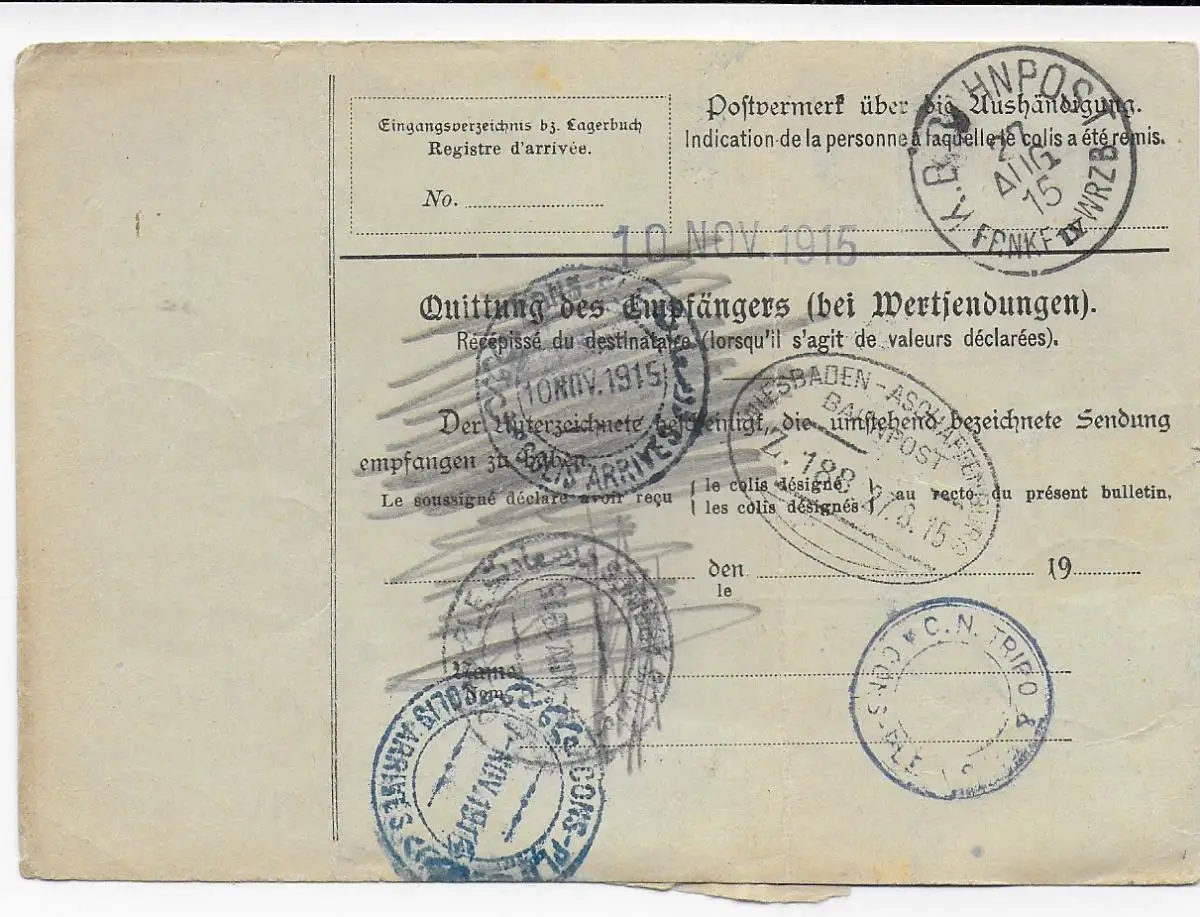 Eingangsverzeichnis bz. Lagerbuch
Registre d'arrivée.
No.
Postvermerk über die Aushändigung.
Indication de la personne à laquelle le colis a été remis.
BAHNPOST
27
AUG
15
WRZB
10 NOV. 1915
Quittung des Empfängers (bei Wertsendungen).
Récépissé du destinataire (lorsqu'il s'agit de valeurs déclarées).
10 NOV. 1915
COLIS ARRIVES
WIESBADEN - ASCHAFFENBURG
BAHNPOST
Z. 188 27.8.15
Der Unterzeichnete bescheinigt, die umstehend bezeichnete Sendung
empfangen zu haben.
Le soussigné déclare avoir reçu { le colis désigné } au recto du présent bulletin,
{ les colis désignés }
den 19
le
Name
Nom
C. N. TRIPO &
CONS-PLE
COLIS ARRIVES
CONS-PL
NOV. 1915